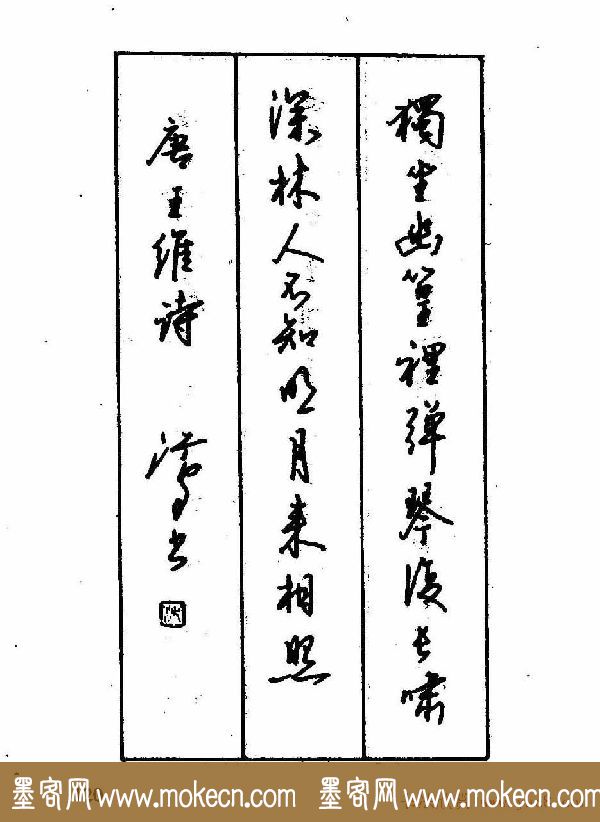 獨坐幽篁裡弹琴復长啸
深林人不知明月来相照
唐王维诗 书
墨客网 www.mokecn.com 墨客网 www.mokecn.com